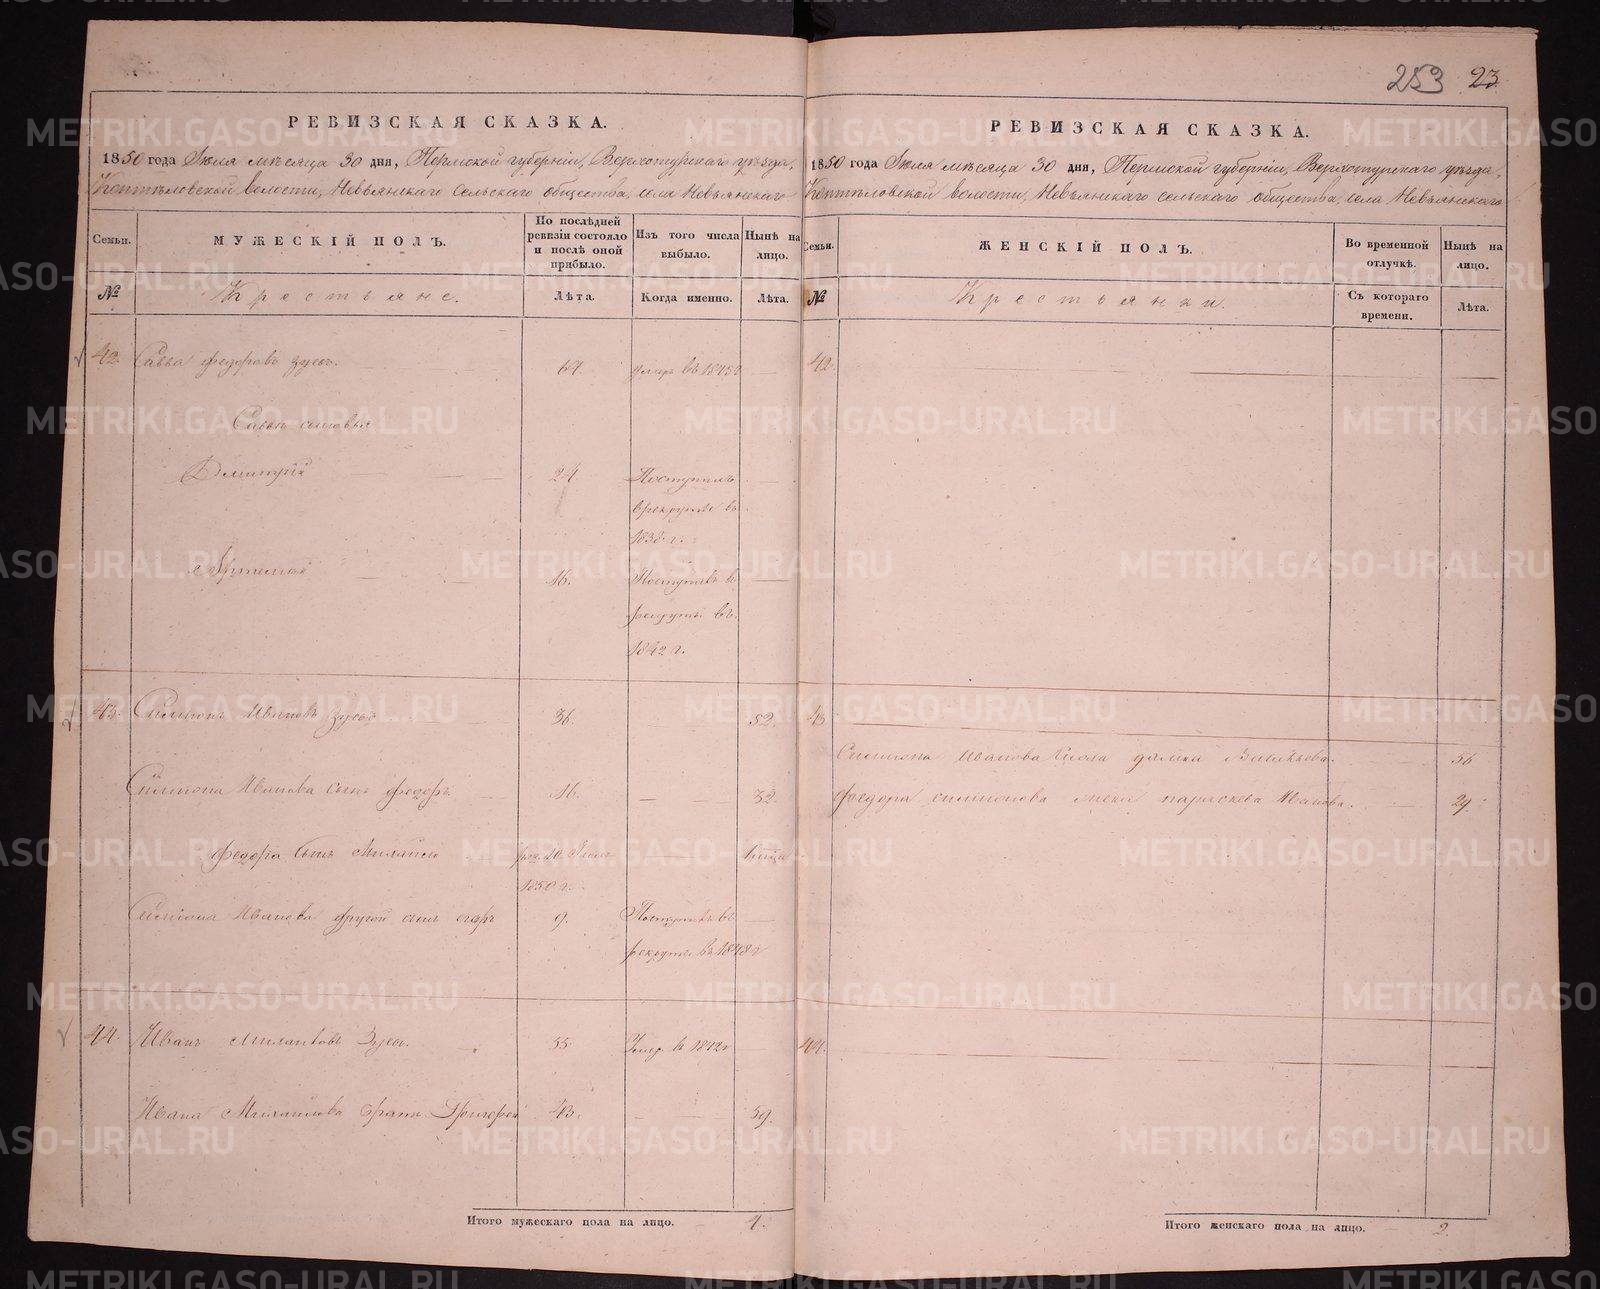 253 23
РЕВИЗСКАЯ СКАЗКА.
1850 года Іюля мѣсяца 30 дня, Пермской губерніи, Верхотурскаго уѣзда,
Коптѣловской волости, Невьянскаго сельскаго общества, села Невьянскаго
Семьи.
МУЖЕСКІЙ ПОЛЪ.
По послѣдней ревизіи состояло и послѣ оной прибыло.
Изъ того числа выбыло.
Нынѣ на лицо.
№
Крестьяне.
Лѣта.
Когда именно.
Лѣта.
42. Савва Федоровъ Зуевъ. 64. умеръ въ 1845
Саввы сыновья
Дмитрій 24. Поступилъ
въ рекруты въ
1838 г.
Артемій 16. Поступилъ в
рекруты въ
1842 г.
43. Симионъ Ивановъ Зуевъ 36. 52.
Симиона Иванова сынъ Федоръ 16. 32.
Федора сынъ Михайло
1850 г.
Симиона Иванова другой сынъ Егоръ 9. Поступилъ въ
рекруты въ 1848 г
44. Иванъ Михайловъ Зуевъ. 55 Умер. в 1842 г
Ивана Михайлова братъ Григорей 43. 59.
Итого мужескаго пола на лицо. 4.
РЕВИЗСКАЯ СКАЗКА.
1850 года Іюля мѣсяца 30 дня, Пермской губерніи, Верхотурскаго уѣзда,
Коптѣловской волости, Невьянскаго сельскаго общества, села Невьянскаго
Семьи.
ЖЕНСКІЙ ПОЛЪ.
Во временной отлучкѣ.
Нынѣ на лицо.
№
Крестьянки.
Съ котораго времени.
Лѣта.
42.
43
Симиона Иванова жена 56
Федора Симионова жена Параскева Иванова. 29
44.
Итого женскаго пола на лицо. 2.
METRIKI.GASO-URAL.RU